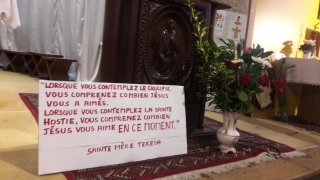 "LORSQUE VOUS CONTEMPLEZ LE CRUCIFIX,
VOUS COMPRENEZ COMBIEN JÉSUS
VOUS A AIMÉS.
LORSQUE VOUS CONTEMPLEZ LA SAINTE
HOSTIE, VOUS COMPRENEZ COMBIEN
JÉSUS VOUS AIME EN CE MOMENT."
SAINTE MÈRE TERESA